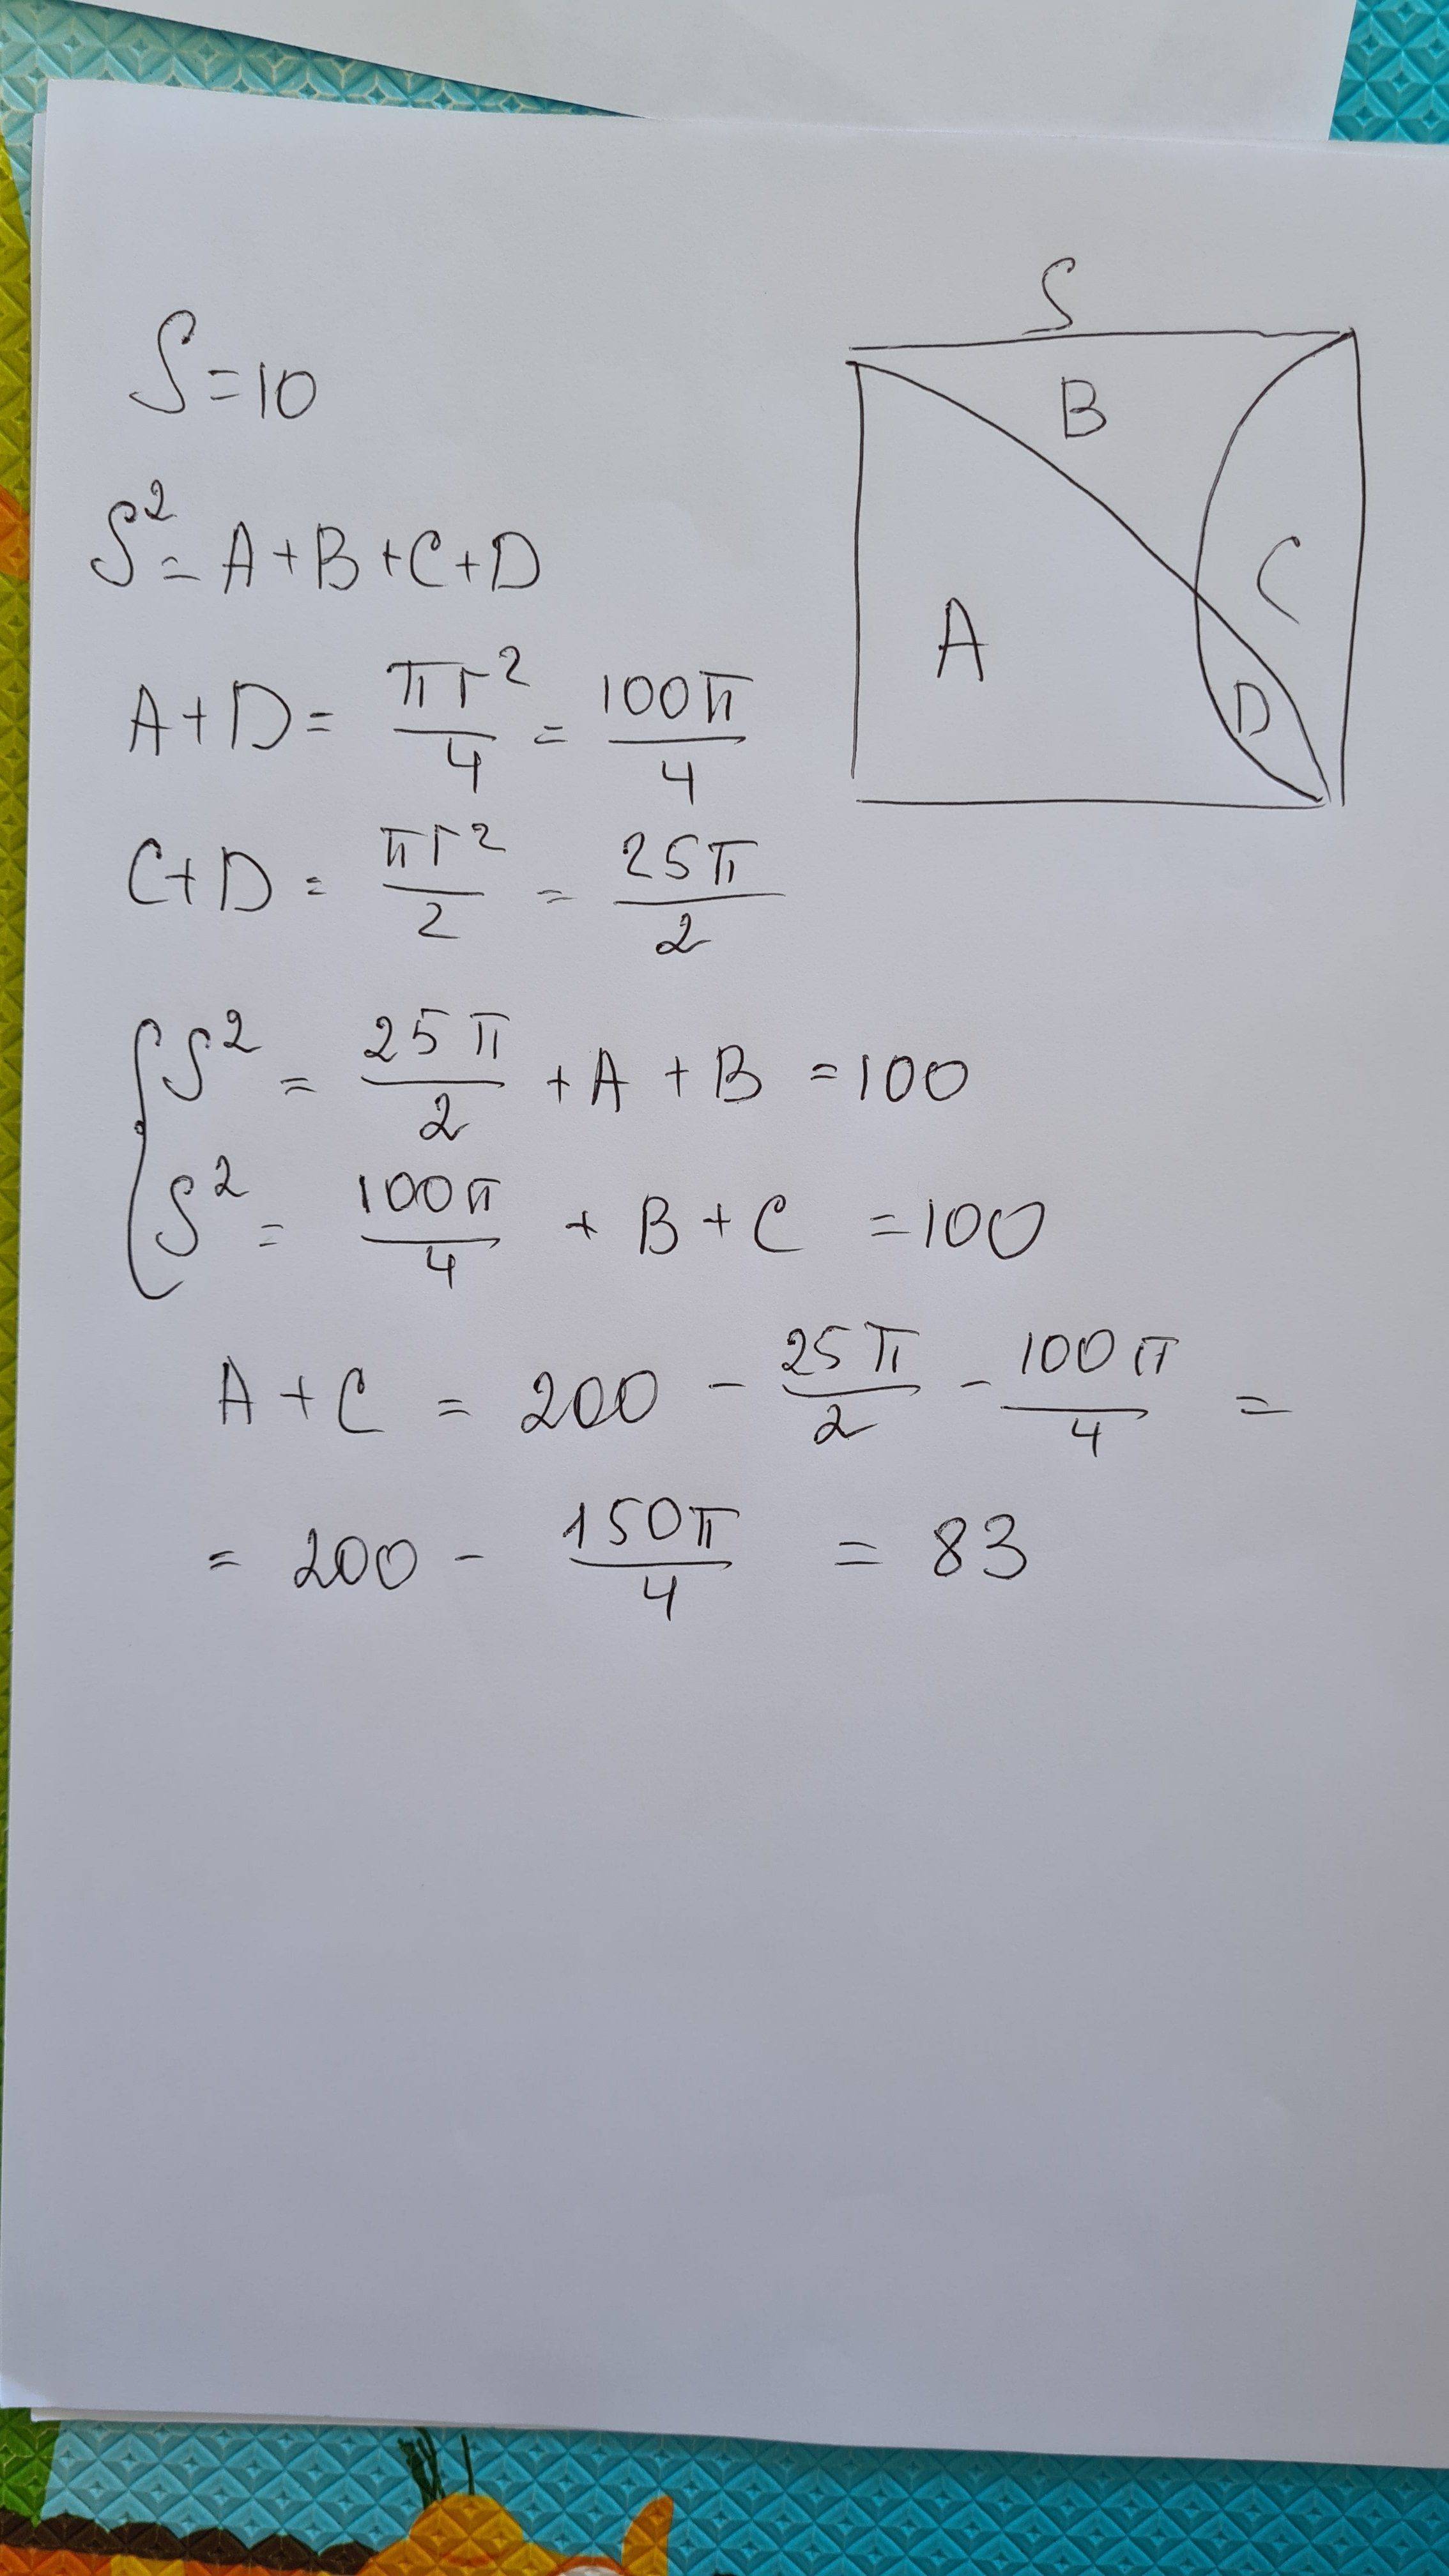 S
S=10
B
S²=A+B+C+D
C
A
A+D= πr²/4 = 100π/4
D
C+D = πr²/2 = 25π/2
S² = 25π/2 + A + B = 100
S² = 100π/4 + B + C = 100
A + C = 200 - 25π/2 - 100π/4 =
= 200 - 150π/4 = 83